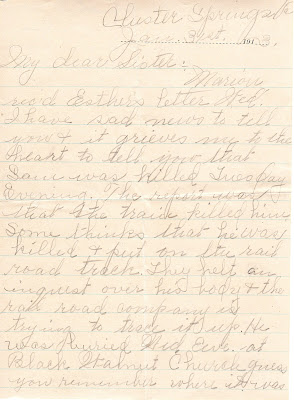 Cluster Springs Va
Jan. 31st. 1913.
My Dear Sister:
Marion
rec'd Esther's letter Wed.
I have sad news to tell
you & it grieves me to the
heart to tell you that
Sam was killed Tuesday
Evening. The report was
that the train killed him
Some thinks that he was
killed & put on the rail
road track. They helt an
inquest over his body & the
rail road company is
trying to trace it up. He
was buried Wed. Eve. at
Black Walnut Church guess
you remember where it was